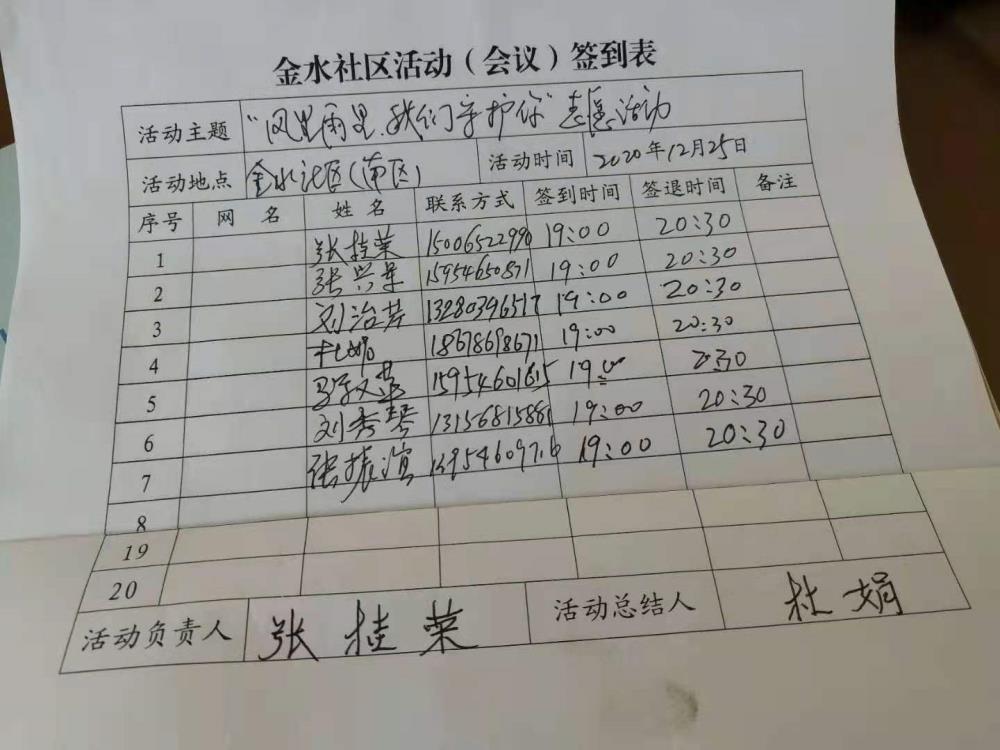 金水社区活动（会议）签到表
活动主题 “风里雨里，我们守护你”志愿活动
活动地点 金水社区(南区) 活动时间 2020年12月25日
序号 网 名 姓 名 联系方式 签到时间 签退时间 备注
1 张桂荣 15006522990 19:00 20:30
2 张兴军 15954650871 19:00 20:30
3 刘治芳 13280396517 19:00 20:30
4 杜娟 18678698671 19:00 20:30
5 15954601615 19:00 20:30
6 刘秀琴 13156815881 19:00 20:30
7 张振谊 19:00 20:30
8
19
20
活动负责人 张桂荣 活动总结人 杜娟